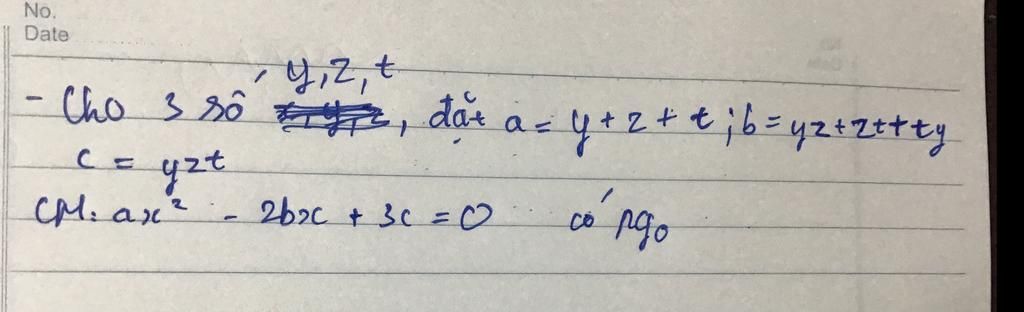 No.
Date
y, z, t
- Cho 3 số , đặt a = y + z + t ; b = yz + zt + ty
c = yzt
CM: ax² - 2bx + 3c = 0 có ngo